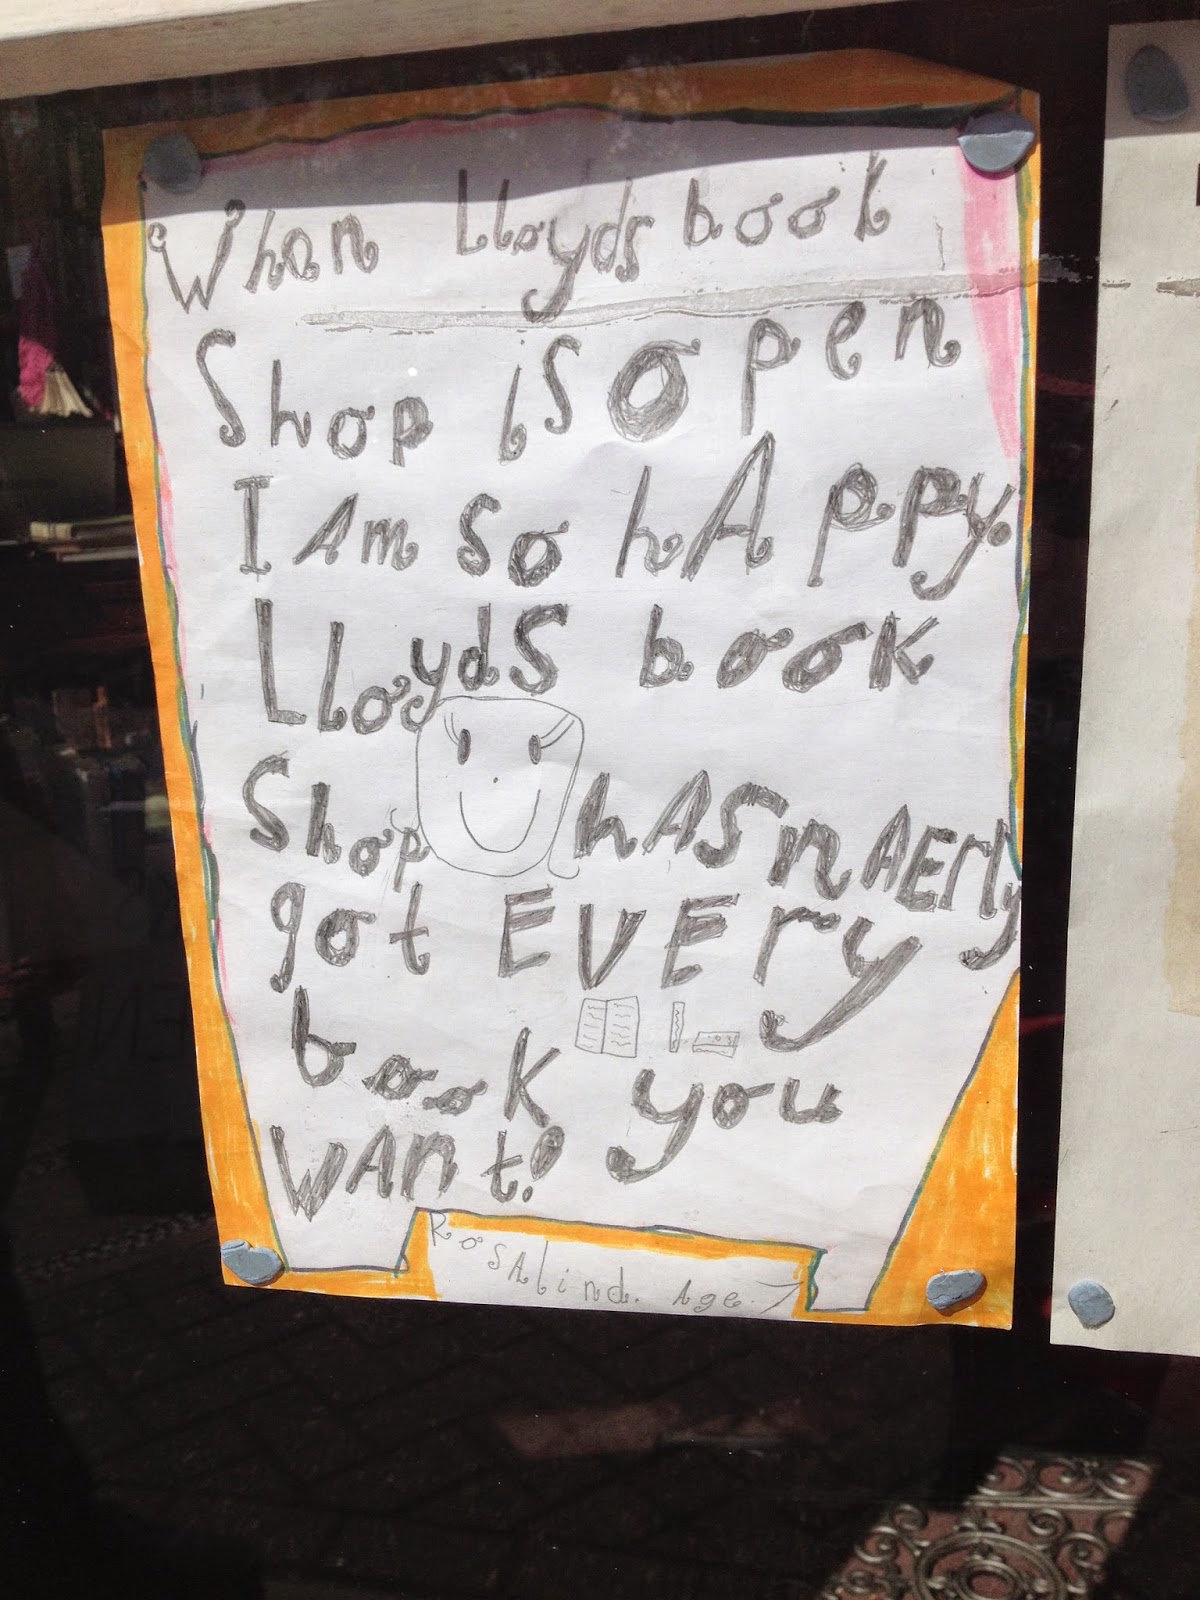 Whan Lloyds book
Shop is open
I Am so hAppy.
Lloyds book
Shop hAs nAErly
got EVEry
book you
wAnt!
RosAlind. Age 7